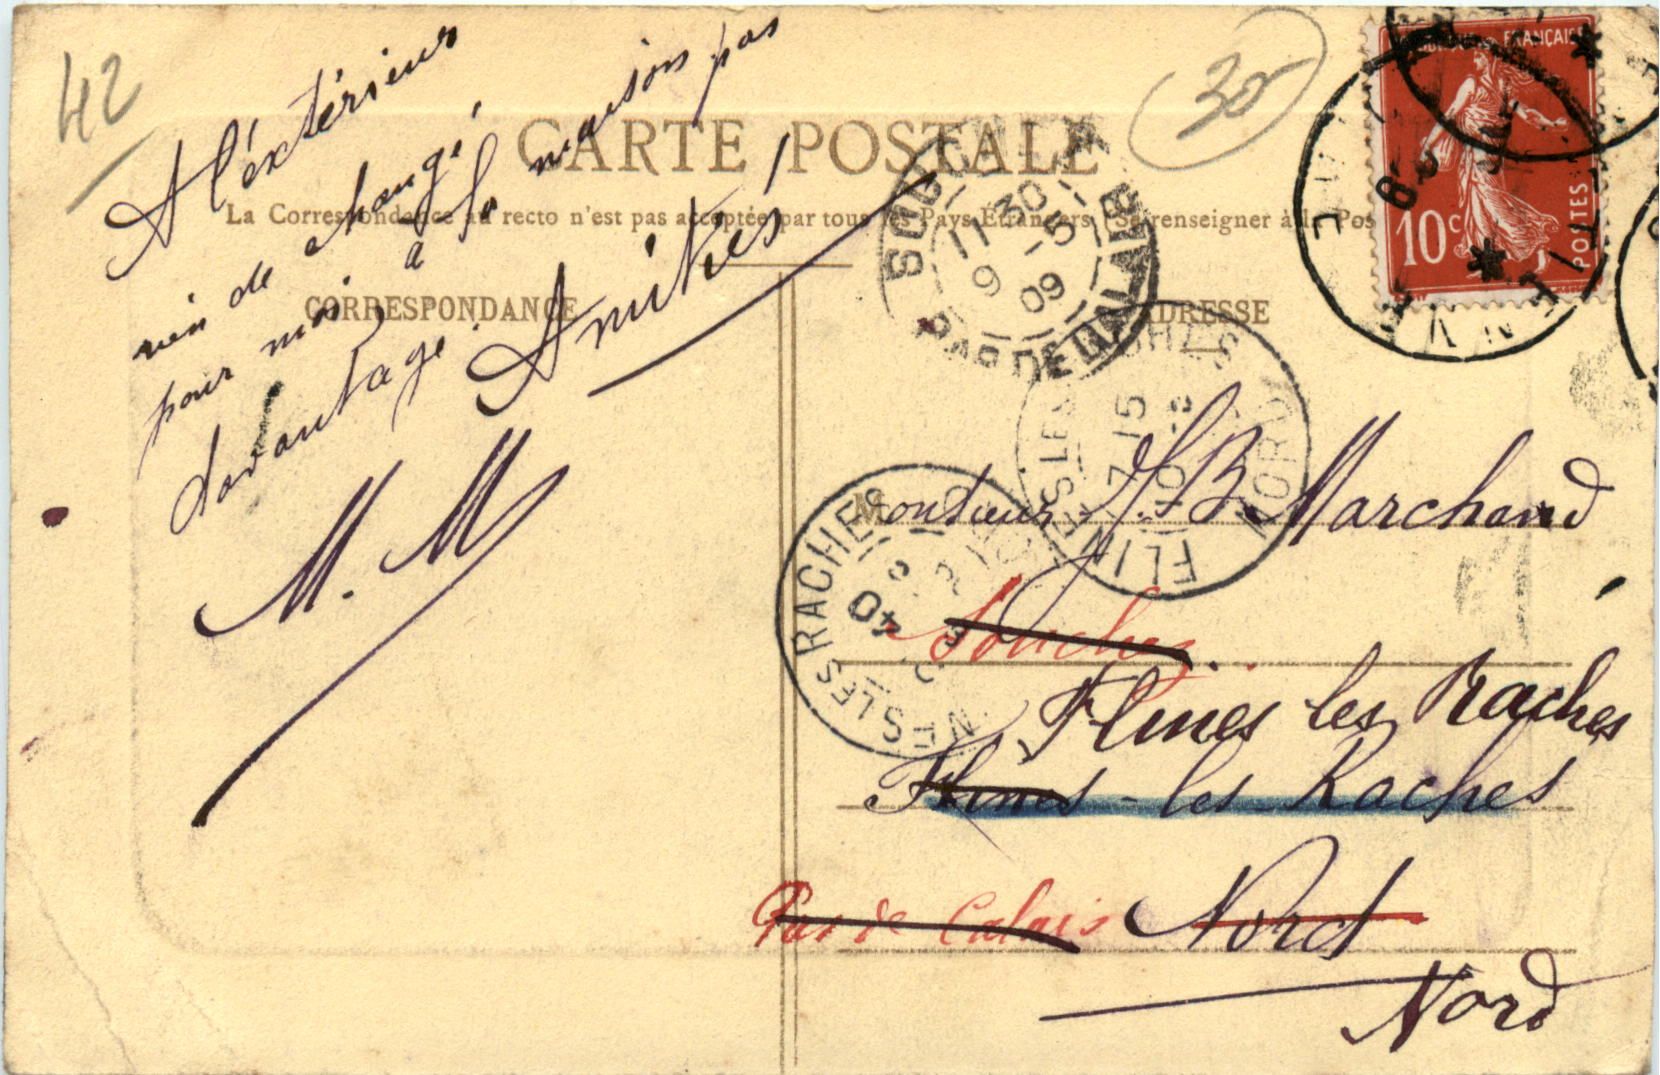 42
30
CARTE POSTALE
La Correspondance au recto n'est pas acceptée par tous les Pays Étrangers (Se renseigner à la Pos
CORRESPONDANCE
ADRESSE
A l'éxtérieur
rien de changé,
pour moi, à la maison pas
davantage.
Amitiés!
M. M
FRANÇAISE
10c
POSTES
11 30
9 -5
09
PAS DE CALAIS
FLINES LES RACHES
7 15
NORD
NES LES RACHES
40
Monsieur J.B. Marchand
Souchez
Flines les Raches
Flines-les Raches
Pas de Calais Nord
Nord